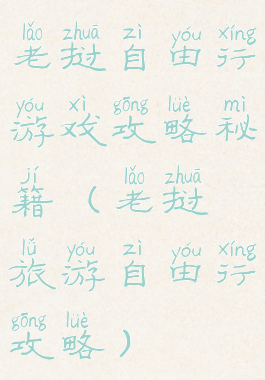 lǎo zhuā zì yóu xíng
老挝自由行
yóu xì gōng lüè mì
游戏攻略秘
jí lǎo zhuā
籍（老挝
lǚ yóu zì yóu xíng
旅游自由行
gōng lüè
攻略）